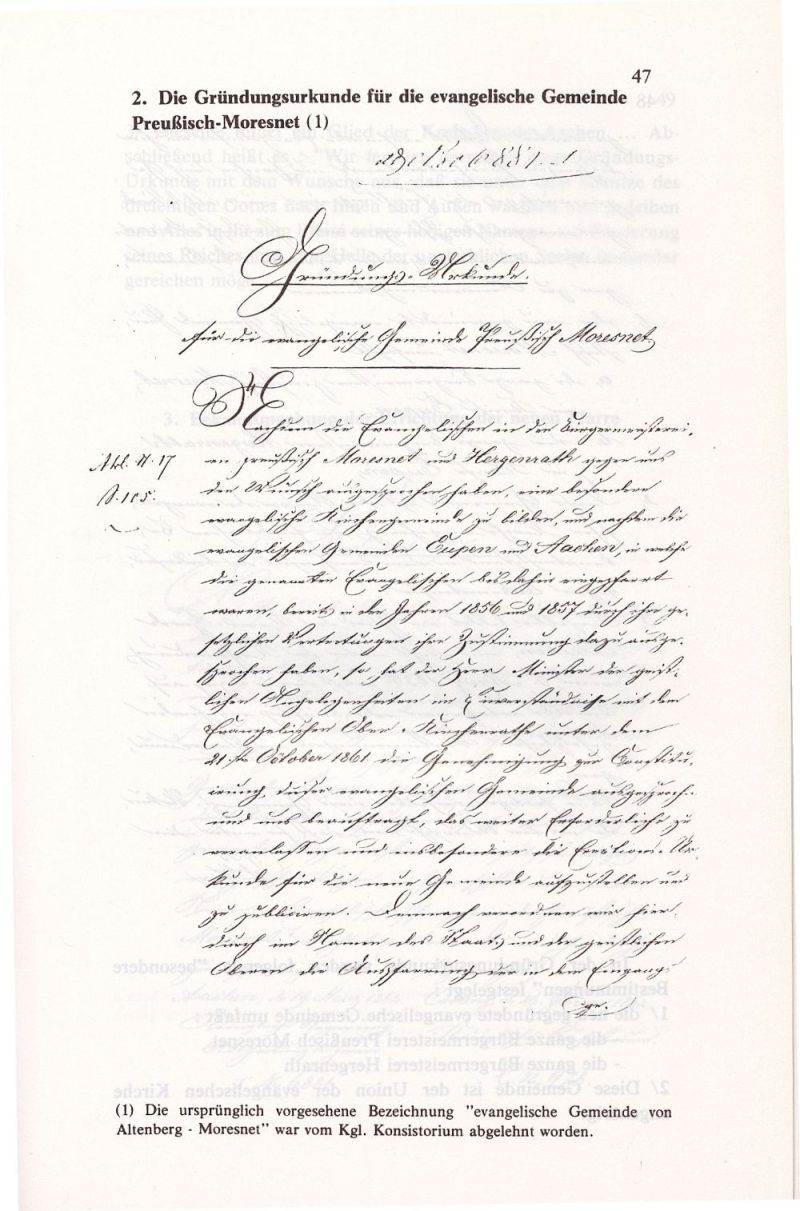 47
2. Die Gründungsurkunde für die evangelische Gemeinde
Preußisch-Moresnet (1)
Gründungs-Urkunde.
für die evangelische Gemeinde Preußisch Moresnet
Nachdem die Evangelischen in den Bürgermeisterei-
en preußisch Moresnet und Hergenrath gegen uns
den Wunsch ausgesprochen haben, eine besondere
evangelische Kirchengemeinde zu bilden, und nachdem die
evangelischen Gemeinden Eupen und Aachen, in welche
die genannten Evangelischen bis dahin eingepfarrt
waren, bereits in den Jahren 1856 und 1857 durch ihre ge-
setzlichen Vertretungen ihre Zustimmung dazu ausge-
sprochen haben, so hat der Herr Minister der geist-
lichen Angelegenheiten im Einverständnisse mit dem
Evangelischen Ober-Kirchenrathe unter dem
21ten October 1861 die Genehmigung zur Constitu-
irung dieser evangelischen Gemeinde ausgesprochen
und uns beauftragt, das weiter Erforderliche zu
veranlassen und insbesondere die Erections-Ur-
kunde für die neue Gemeinde aufzustellen und
zu publiciren. Demnach verordnen wir hier-
durch im Namen des Staats und der geistlichen
Oberen die Auspfarrung der in den Eingangs
Abl. N. 17
S. 105.
(1) Die ursprünglich vorgesehene Bezeichnung "evangelische Gemeinde von
Altenberg - Moresnet" war vom Kgl. Konsistorium abgelehnt worden.